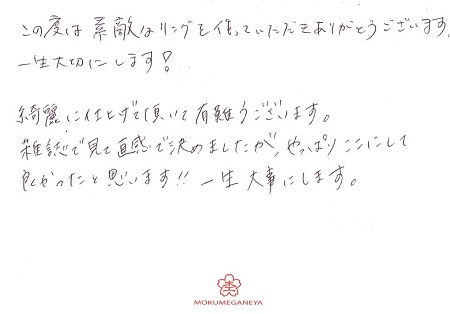 この度は素敵なリングを作っていただきありがとうございます。
一生大切にします!
綺麗に仕上げて頂いて有難うございます。
雑誌で見て直感で決めましたが、やっぱりここにして
良かったと思います!! 一生大事にします。
MOKUMEGANEYA